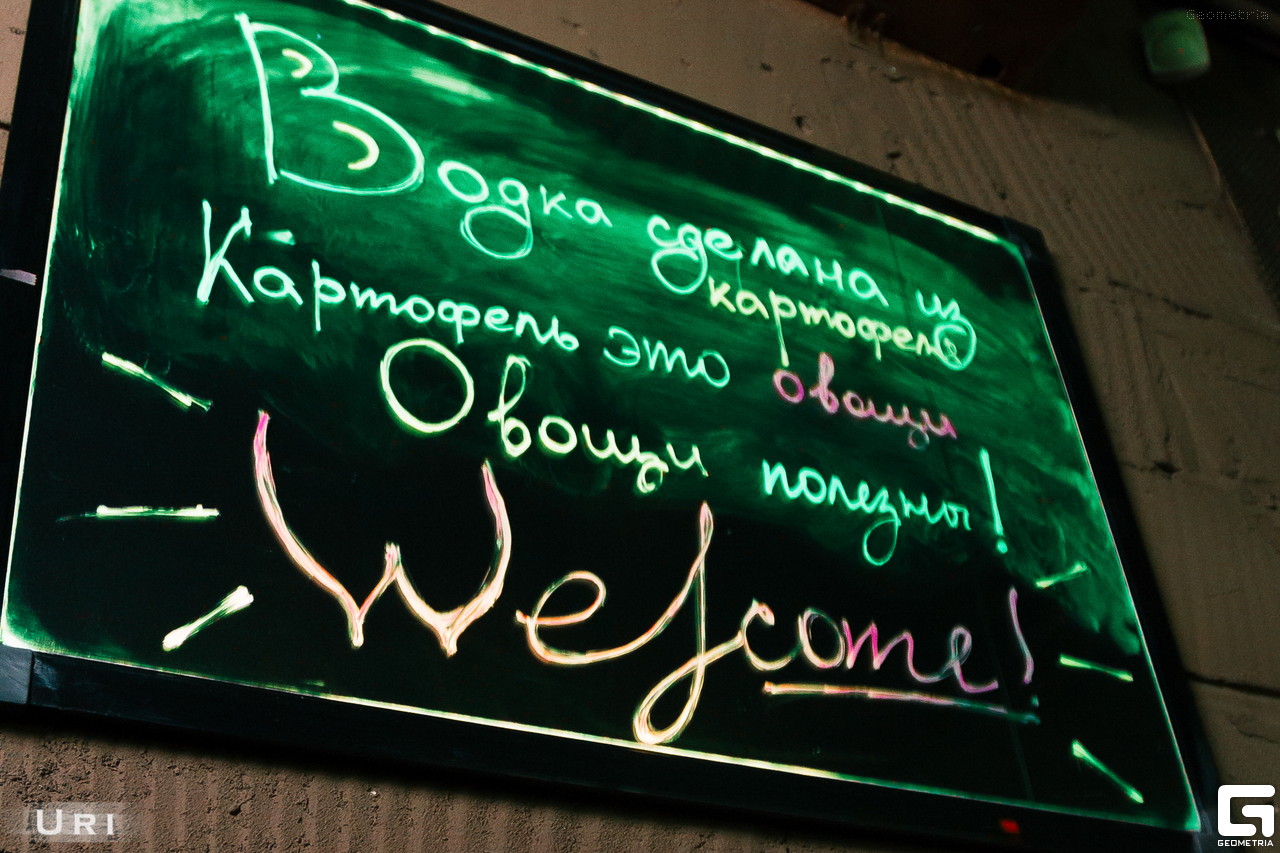 Geometria
Водка сделана из
картофеля
Картофель это овощи
Овощи полезны!
Welcome!
URI
GEOMETRIA